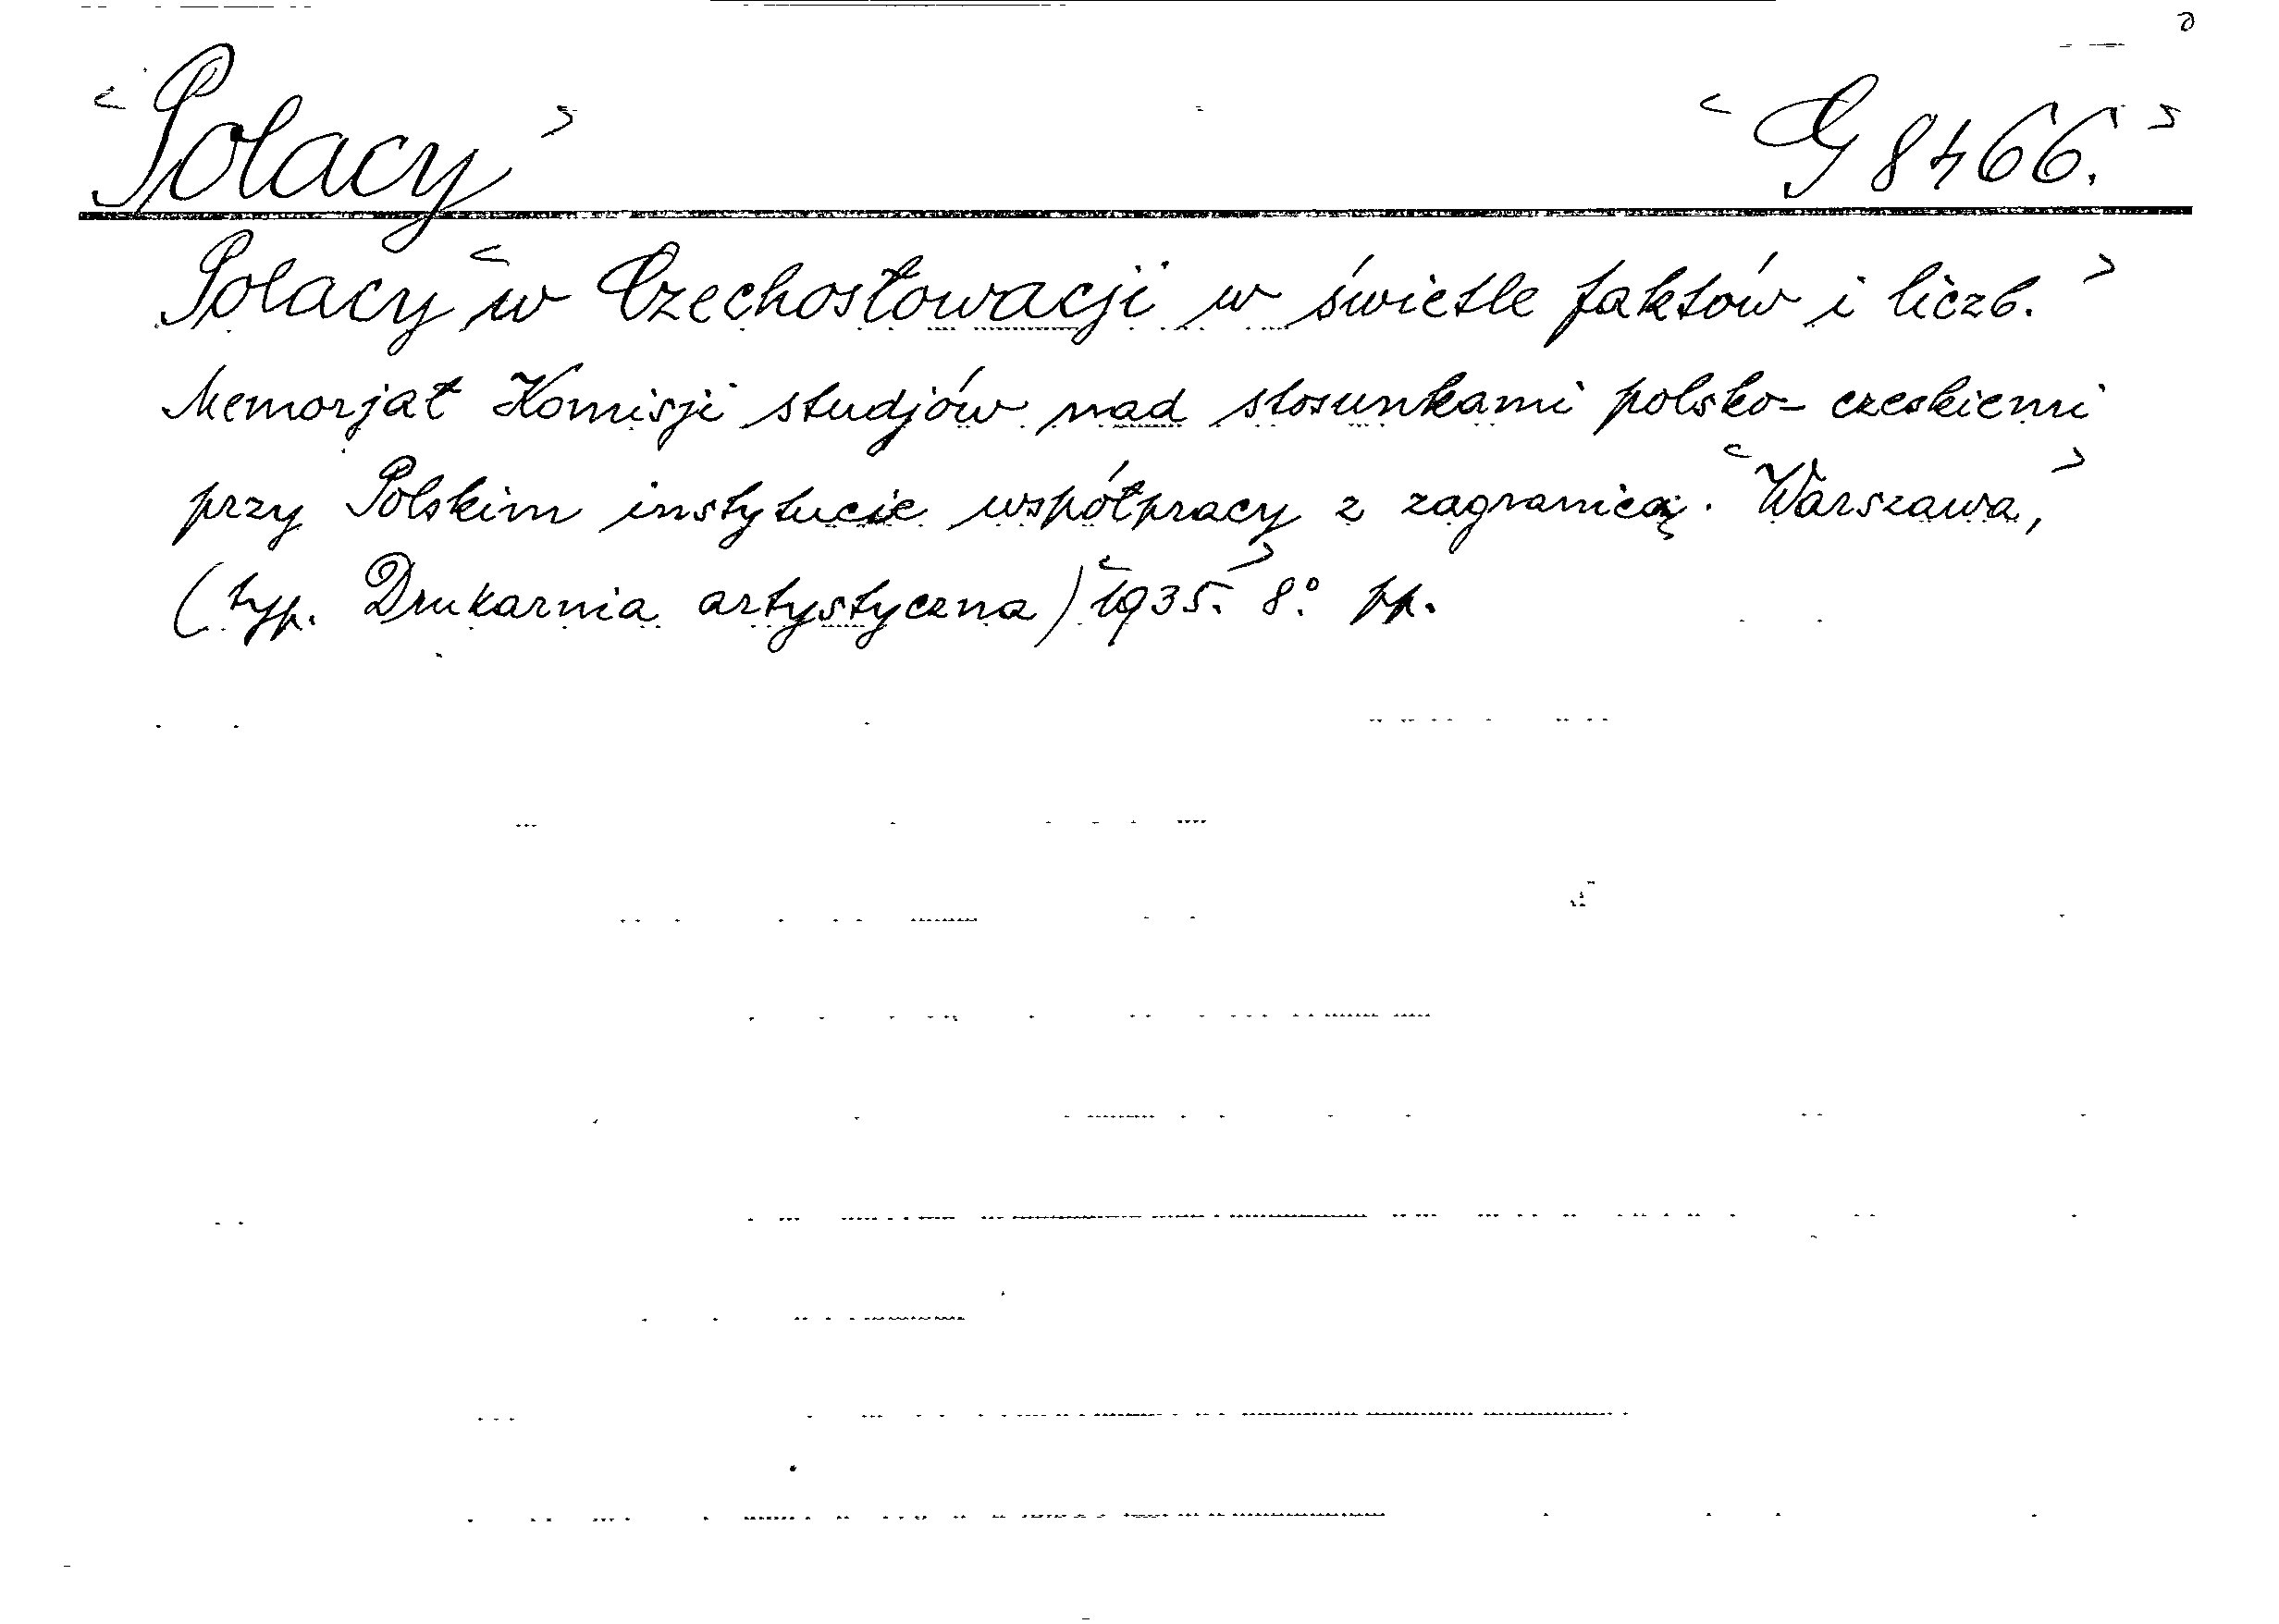 <Polacy> <G 8466.>
Polacy <w Czechosłowacji w świetle faktów i liczb.>
Memorjał Komisji studjów nad stosunkami polsko-czeskiemi
przy Polskim instytucie współpracy z zagranicą. <Warszawa,>
(typ. Drukarnia artystyczna) <1935.> 8.° pp.